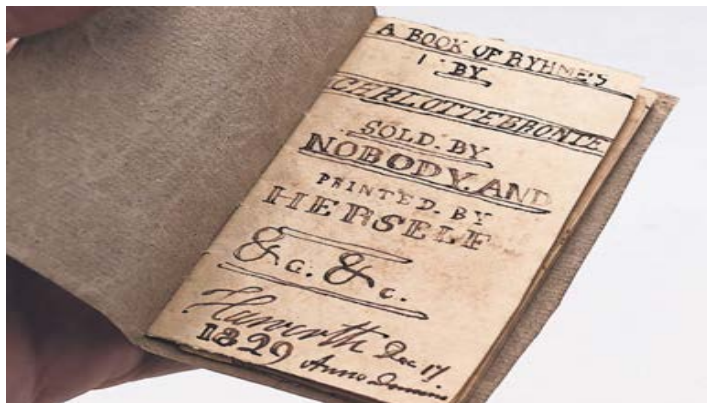 A BOOK OF RYHMES
BY
CHARLOTTE BRONTE
SOLD. BY
NOBODY. AND
PRINTED. BY
HERSELF
&c. &c.
Haworth Dec 17
1829 Anno Domini